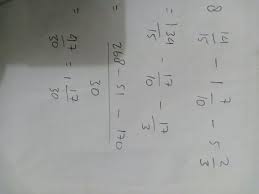 8 14/15 - 1 7/10 - 5 2/3
= 134/15 - 17/10 - 17/3
= 268 - 51 - 170 / 30
= 47/30 = 1 17/30